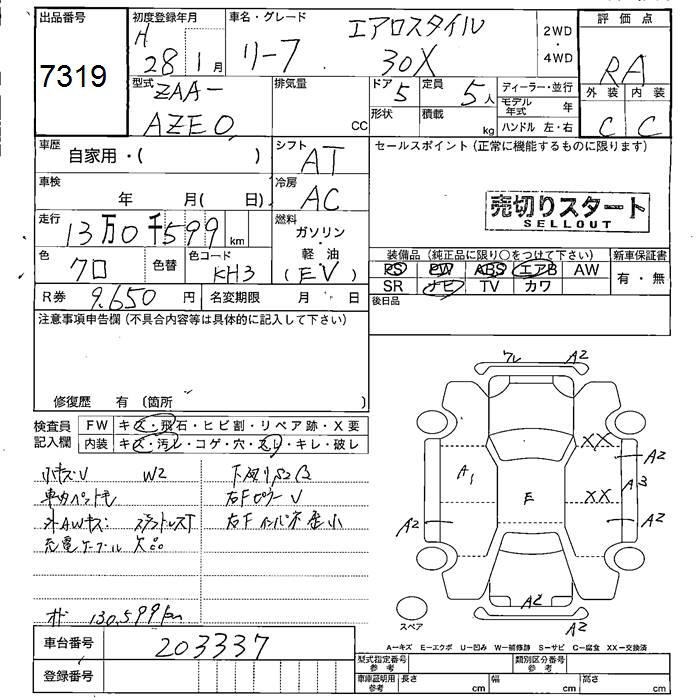 出品番号 7319
初度登録年月 H 28年 1月
車名・グレード リーフ エアロスタイル 30X
2WD・4WD
評価点 RA
外装 C 内装 C
型式 ZAA-AZE0
排気量 CC
ドア 5 形状
定員 5人 積載 kg
ディーラー・並行
モデル年式 年
ハンドル 左・右
車歴 自家用・( )
シフト AT
セールスポイント(正常に機能するものに限ります)
車検 年 月( 日)
冷房 AC
売切りスタート
SELLOUT
走行 13万0千599km
燃料 ガソリン・軽油 (EV)
装備品(純正品に限り○をつけて下さい)
PS PW ABS エアB AW
SR ナビ TV カワ
新車保証書 有・無
色 クロ 色替
色コード KH3
後日品
R券 9.650円
名変期限 月 日
注意事項申告欄(不具合内容等は具体的に記入して下さい)
修復歴 有(箇所 )
検査員記入欄
FW キズ・飛石・ヒビ割・リペア跡・X要
内装 キズ・汚レ・コゲ・穴・スレ・キレ・破レ
小キズU W2
車内ペット毛
充電ケーブル欠品
右Fピラー U
右Fインパネ歪小
130,599km
車台番号 203337
登録番号
クレ A2
A2
A1
E
XX
XX
A3
A2
A2
A2
A2
スペア
A-キズ E-エクボ U-凹み W-補修跡 S-サビ C-腐食 XX-交換済
型式指定番号 参考
類別区分番号 参考
車庫証明用 参考 長さ cm 幅 cm 高さ cm